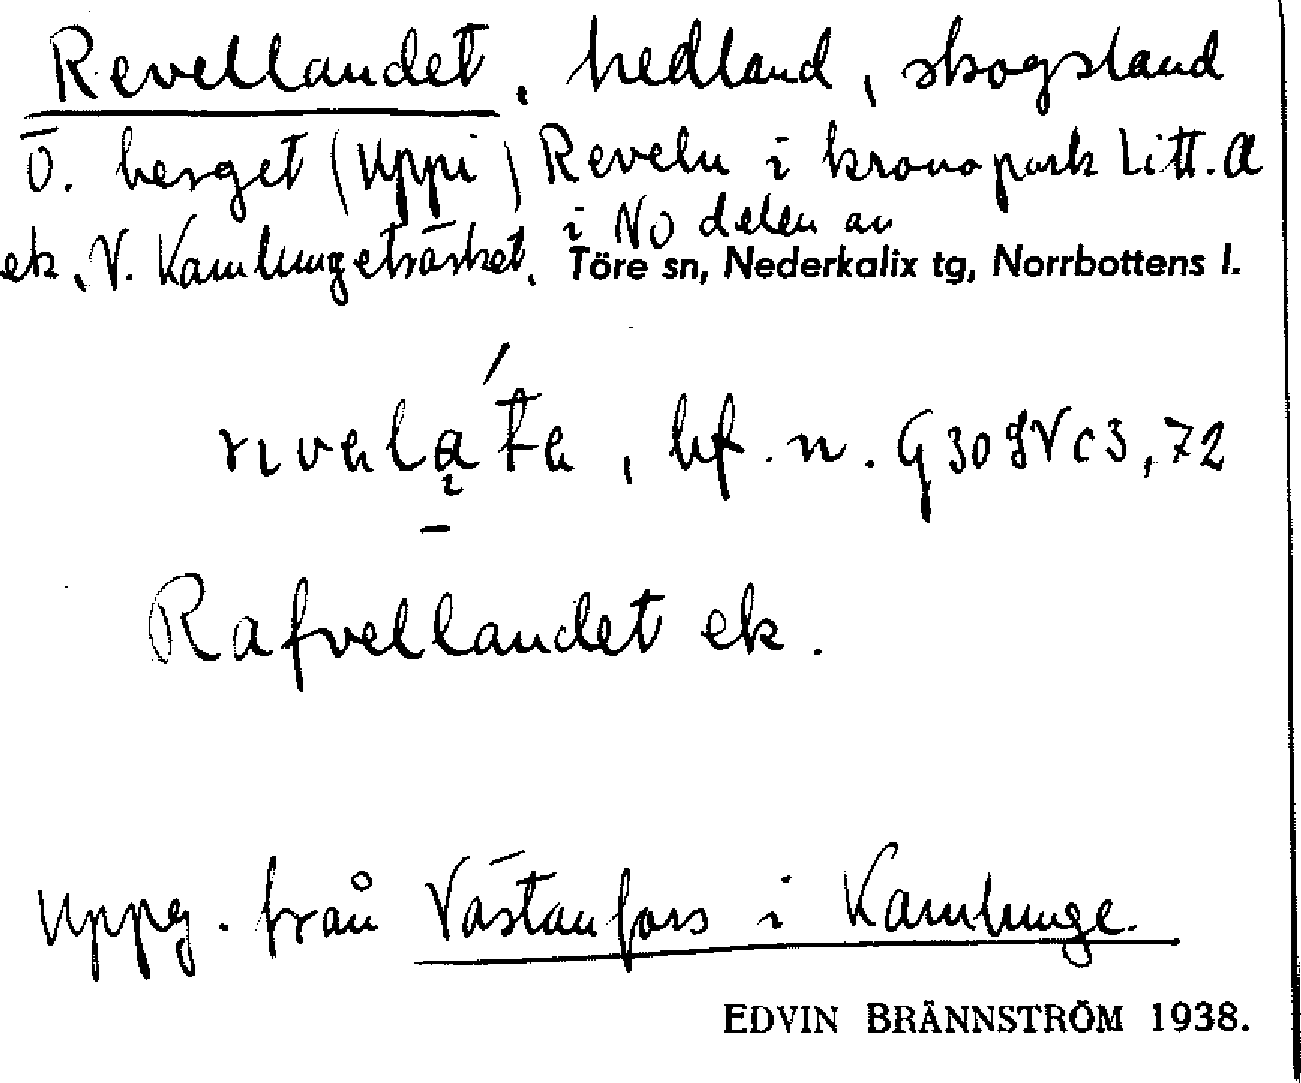 Revellandet, hedland, skogsland
Ö. berget (Uppi) Reveln i kronopark Litt. A
i NO delen av
ek, V. Kamlungeträsket. Töre sn, Nederkalix tg, Norrbottens l.
bf. n.
Rafvellandet ek.
Uppg. från Västanfors i Kamlunge.
EDVIN BRÄNNSTRÖM 1938.